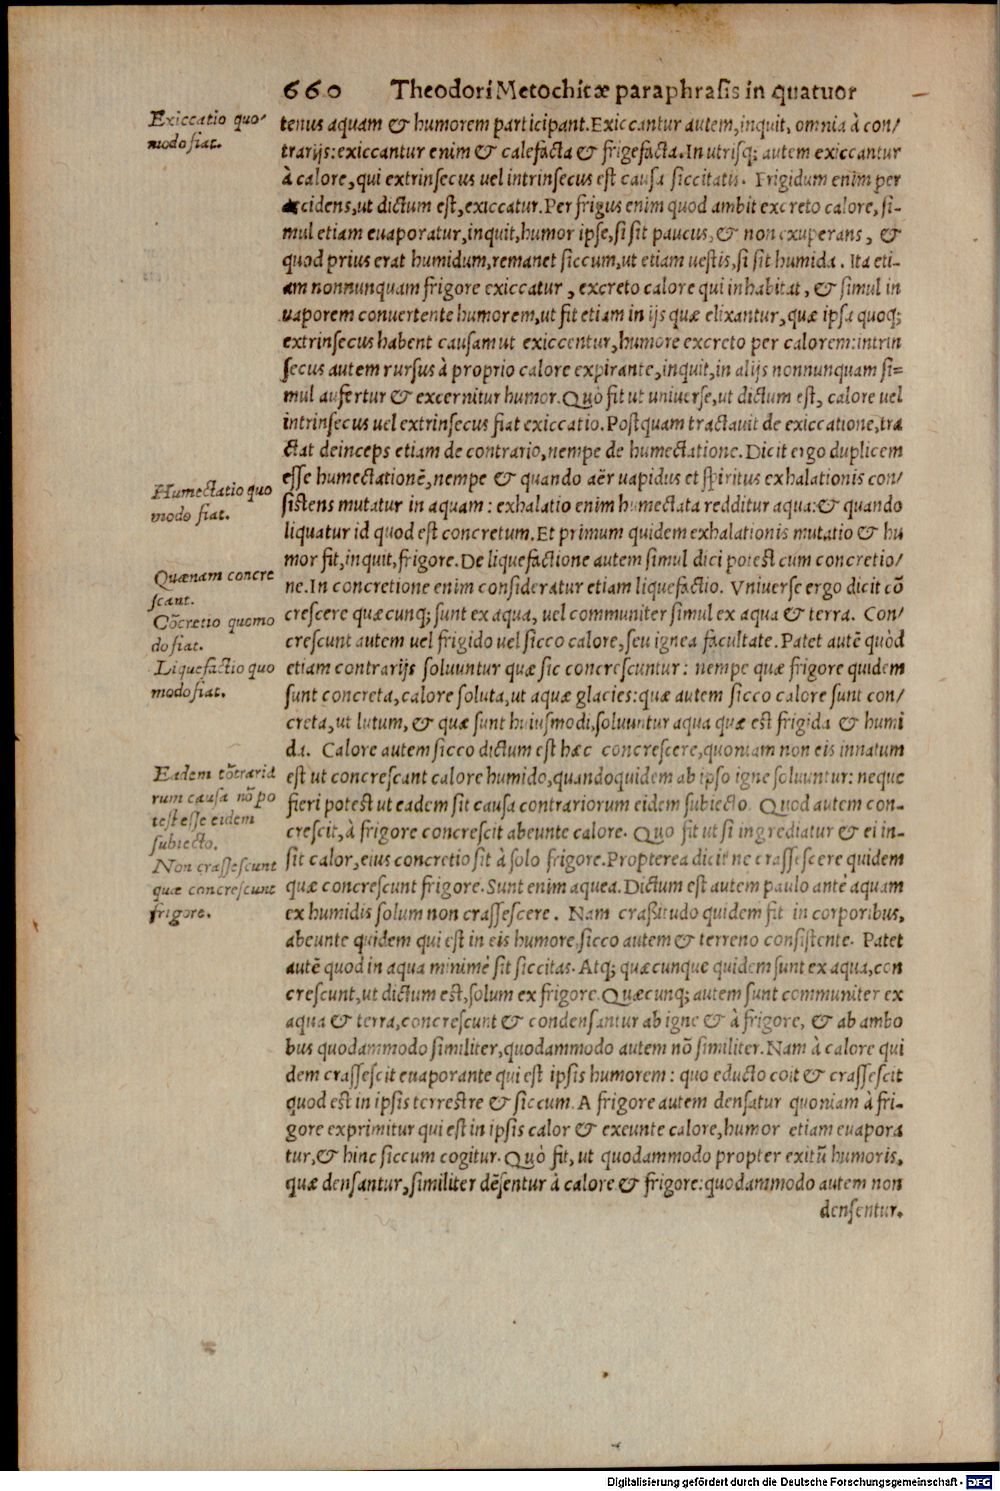 660 Theodori Metochitæ paraphrasis in quatuor
Exiccatio quo-
modo fiat.
tenus aquam & humorem participant. Exiccantur autem, inquit, omnia à con/
trarijs: exiccantur enim & calefacta & frigefacta. In utrisq; autem exiccantur
à calore, qui extrinsecus uel intrinsecus est causa siccitatis. Frigidum enim per
accidens, ut dictum est, exiccatur. Per frigus enim quod ambit excreto calore, si-
mul etiam euaporatur, inquit, humor ipse, si sit paucus, & non exuperans, &
quod prius erat humidum, remanet siccum, ut etiam uestis, si sit humida. Ita eti-
am nonnunquam frigore exiccatur, excreto calore qui inhabitat, & simul in
uaporem conuertente humorem, ut fit etiam in ijs quæ elixantur, quæ ipsa quoq;
extrinsecus habent causam ut exiccentur, humore excreto per calorem: intrin
secus autem rursus à proprio calore expirante, inquit, in alijs nonnunquam si=
mul aufertur & excernitur humor. Quò fit ut uniuerse, ut dictum est, calore uel
intrinsecus uel extrinsecus fiat exiccatio. Postquam tractauit de exiccatione, tra
ctat deinceps etiam de contrario, nempe de humectatione. Dicit ergo duplicem
Humectatio quo
modo fiat.
esse humectationē, nempe & quando aër uapidus et spiritus exhalationis con/
sistens mutatur in aquam: exhalatio enim humectata redditur aqua: & quando
liquatur id quod est concretum. Et primum quidem exhalationis mutatio & hu
mor fit, inquit, frigore. De liquefactione autem simul dici potest cum concretio/
Quænam concre
scant.
Cōcretio quomo
do fiat.
Liquefactio quo
modo fiat.
ne. In concretione enim consideratur etiam liquefactio. Vniuerse ergo dicit cō
crescere quæcunq; sunt ex aqua, uel communiter simul ex aqua & terra. Con/
crescunt autem uel frigido uel sicco calore, seu ignea facultate. Patet autē quòd
etiam contrarijs soluuntur quæ sic concrescuntur: nempe quæ frigore quidem
sunt concreta, calore soluta, ut aquæ glacies: quæ autem sicco calore sunt con/
creta, ut lutum, & quæ sunt huiusmodi, soluuntur aqua quæ est frigida & humi
da. Calore autem sicco dictum est hæc concrescere, quoniam non eis innatum
Eadem cōtrario
rum causa nō po
test esse eidem
subiecto.
Non crassescunt
quæ concrescunt
frigore.
est ut concrescant calore humido, quandoquidem ab ipso igne soluuntur: neque
fieri potest ut eadem sit causa contrariorum eidem subiecto. Quod autem con-
crescit, à frigore concrescit abeunte calore. Quo fit ut si ingrediatur & ei in-
sit calor, eius concretio sit à solo frigore. Propterea dicit ne crassescere quidem
quæ concrescunt frigore. Sunt enim aquea. Dictum est autem paulo antè aquam
ex humidis solum non crassescere. Nam crassitudo quidem fit in corporibus,
abeunte quidem qui est in eis humore, sicco autem & terreno consistente. Patet
autē quod in aqua minimè sit siccitas. Atq; quæcunque quidem sunt ex aqua, con
crescunt, ut dictum est, solum ex frigore. Quæcunq; autem sunt communiter ex
aqua & terra, concrescunt & condensantur ab igne & à frigore, & ab ambo
bus quodammodo similiter, quodammodo autem nō similiter. Nam à calore qui
dem crassescit euaporante qui est ipsis humorem: quo educto coit & crassescit
quod est in ipsis terrestre & siccum. A frigore autem densatur quoniam à fri-
gore exprimitur qui est in ipsis calor & exeunte calore, humor etiam euapora
tur, & hinc siccum cogitur. Quò fit, ut quodammodo propter exitū humoris,
quæ densantur, similiter dēsentur à calore & frigore: quodammodo autem non
densentur.
Digitalisierung gefördert durch die Deutsche Forschungsgemeinschaft - DFG